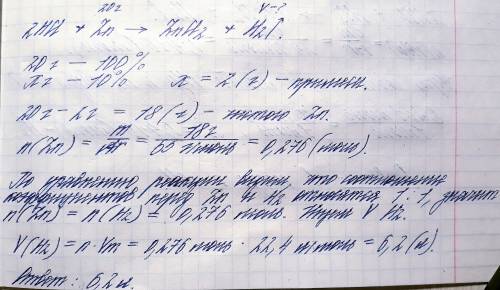 20г V-?
2HCl + Zn → ZnCl2 + H2↑.
20г — 100%
xг — 10% x = 2(г) - примеси.
20г - 2г = 18(г) - чистого Zn.
n(Zn) = m/M = 18г/65 г/моль = 0,276(моль).
По уравнению реакции видим, что соотношение
коэффициентов перед Zn и H2 относятся 1:1, значит
n(Zn) = n(H2) = 0,276 моль. Ищем V H2.
V(H2) = n·Vm = 0,276 моль · 22,4 л/моль = 6,2(л).
Ответ: 6,2 л.